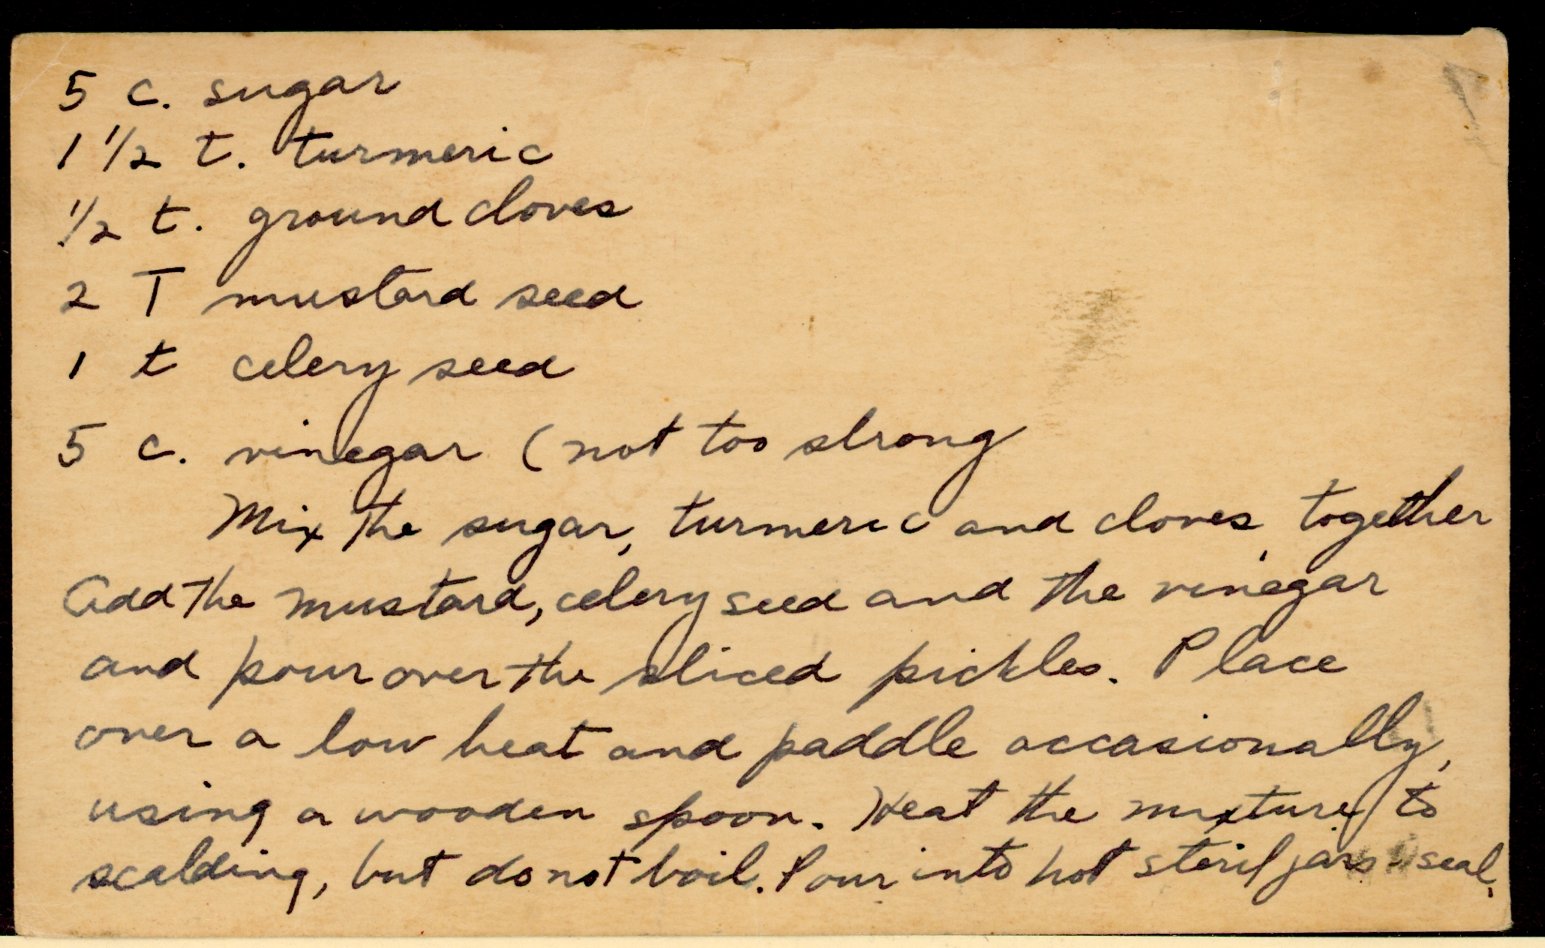 5 c. sugar
1 1/2 t. turmeric
1/2 t. ground cloves
2 T mustard seed
1 t celery seed
5 c. vinegar (not too strong
Mix the sugar, turmeric and cloves together
Add the mustard, celery seed and the vinegar
and pour over the sliced pickles. Place
over a low heat and paddle occasionally,
using a wooden spoon. Heat the mixture to
scalding, but do not boil. Pour into hot steril jars & seal.